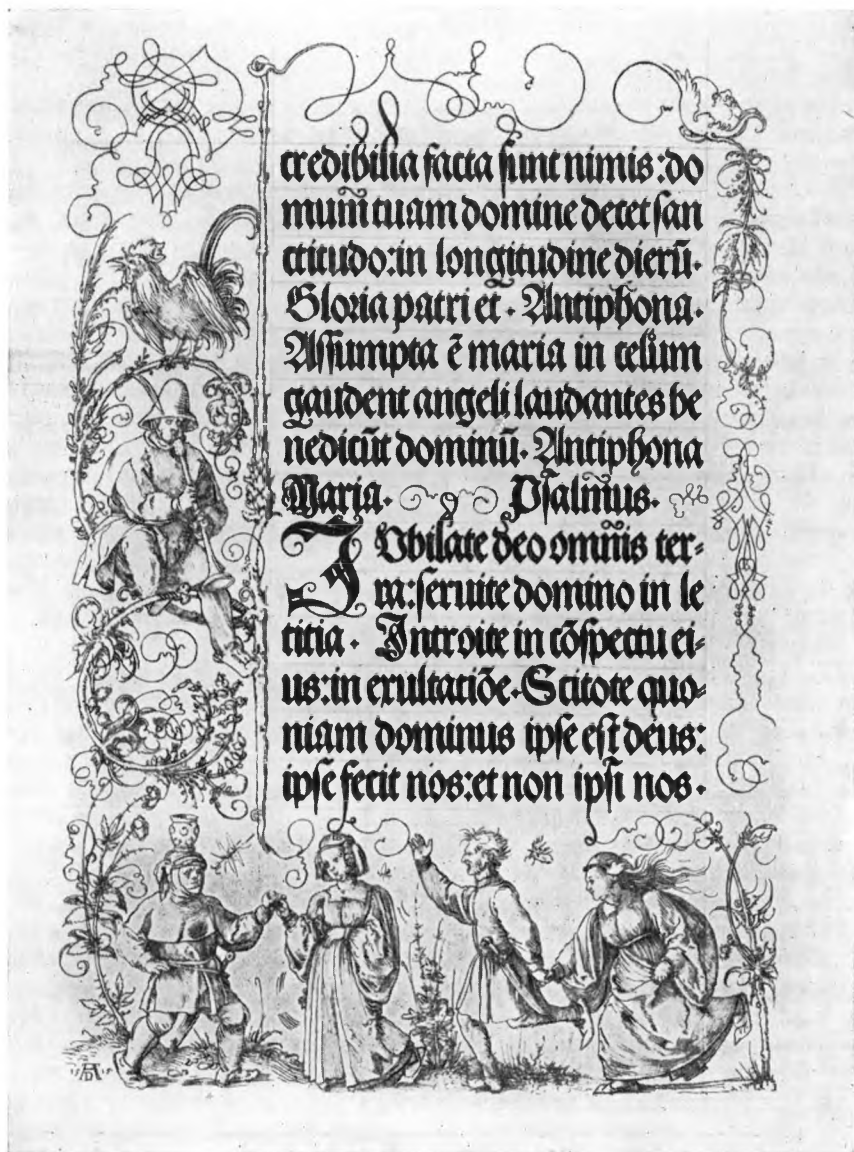 credibilia facta sunt nimis:do
mum̃ tuam domine decet san
ctitudo:in longitudine dierũ·
Gloria patri et · Antiphona·
Assumpta ẽ maria in celum
gaudent angeli laudantes be
nedicũt dominũ· Antiphona
Maria· Psalmus·
IVbilate deo omñis ter-
ra:seruite domino in le
titia · Introite in cõspectu ei-
us:in exultatiõe·Scitote quo-
niam dominus ipse est deus:
ipse fecit nos:et non ipsi nos·
AD